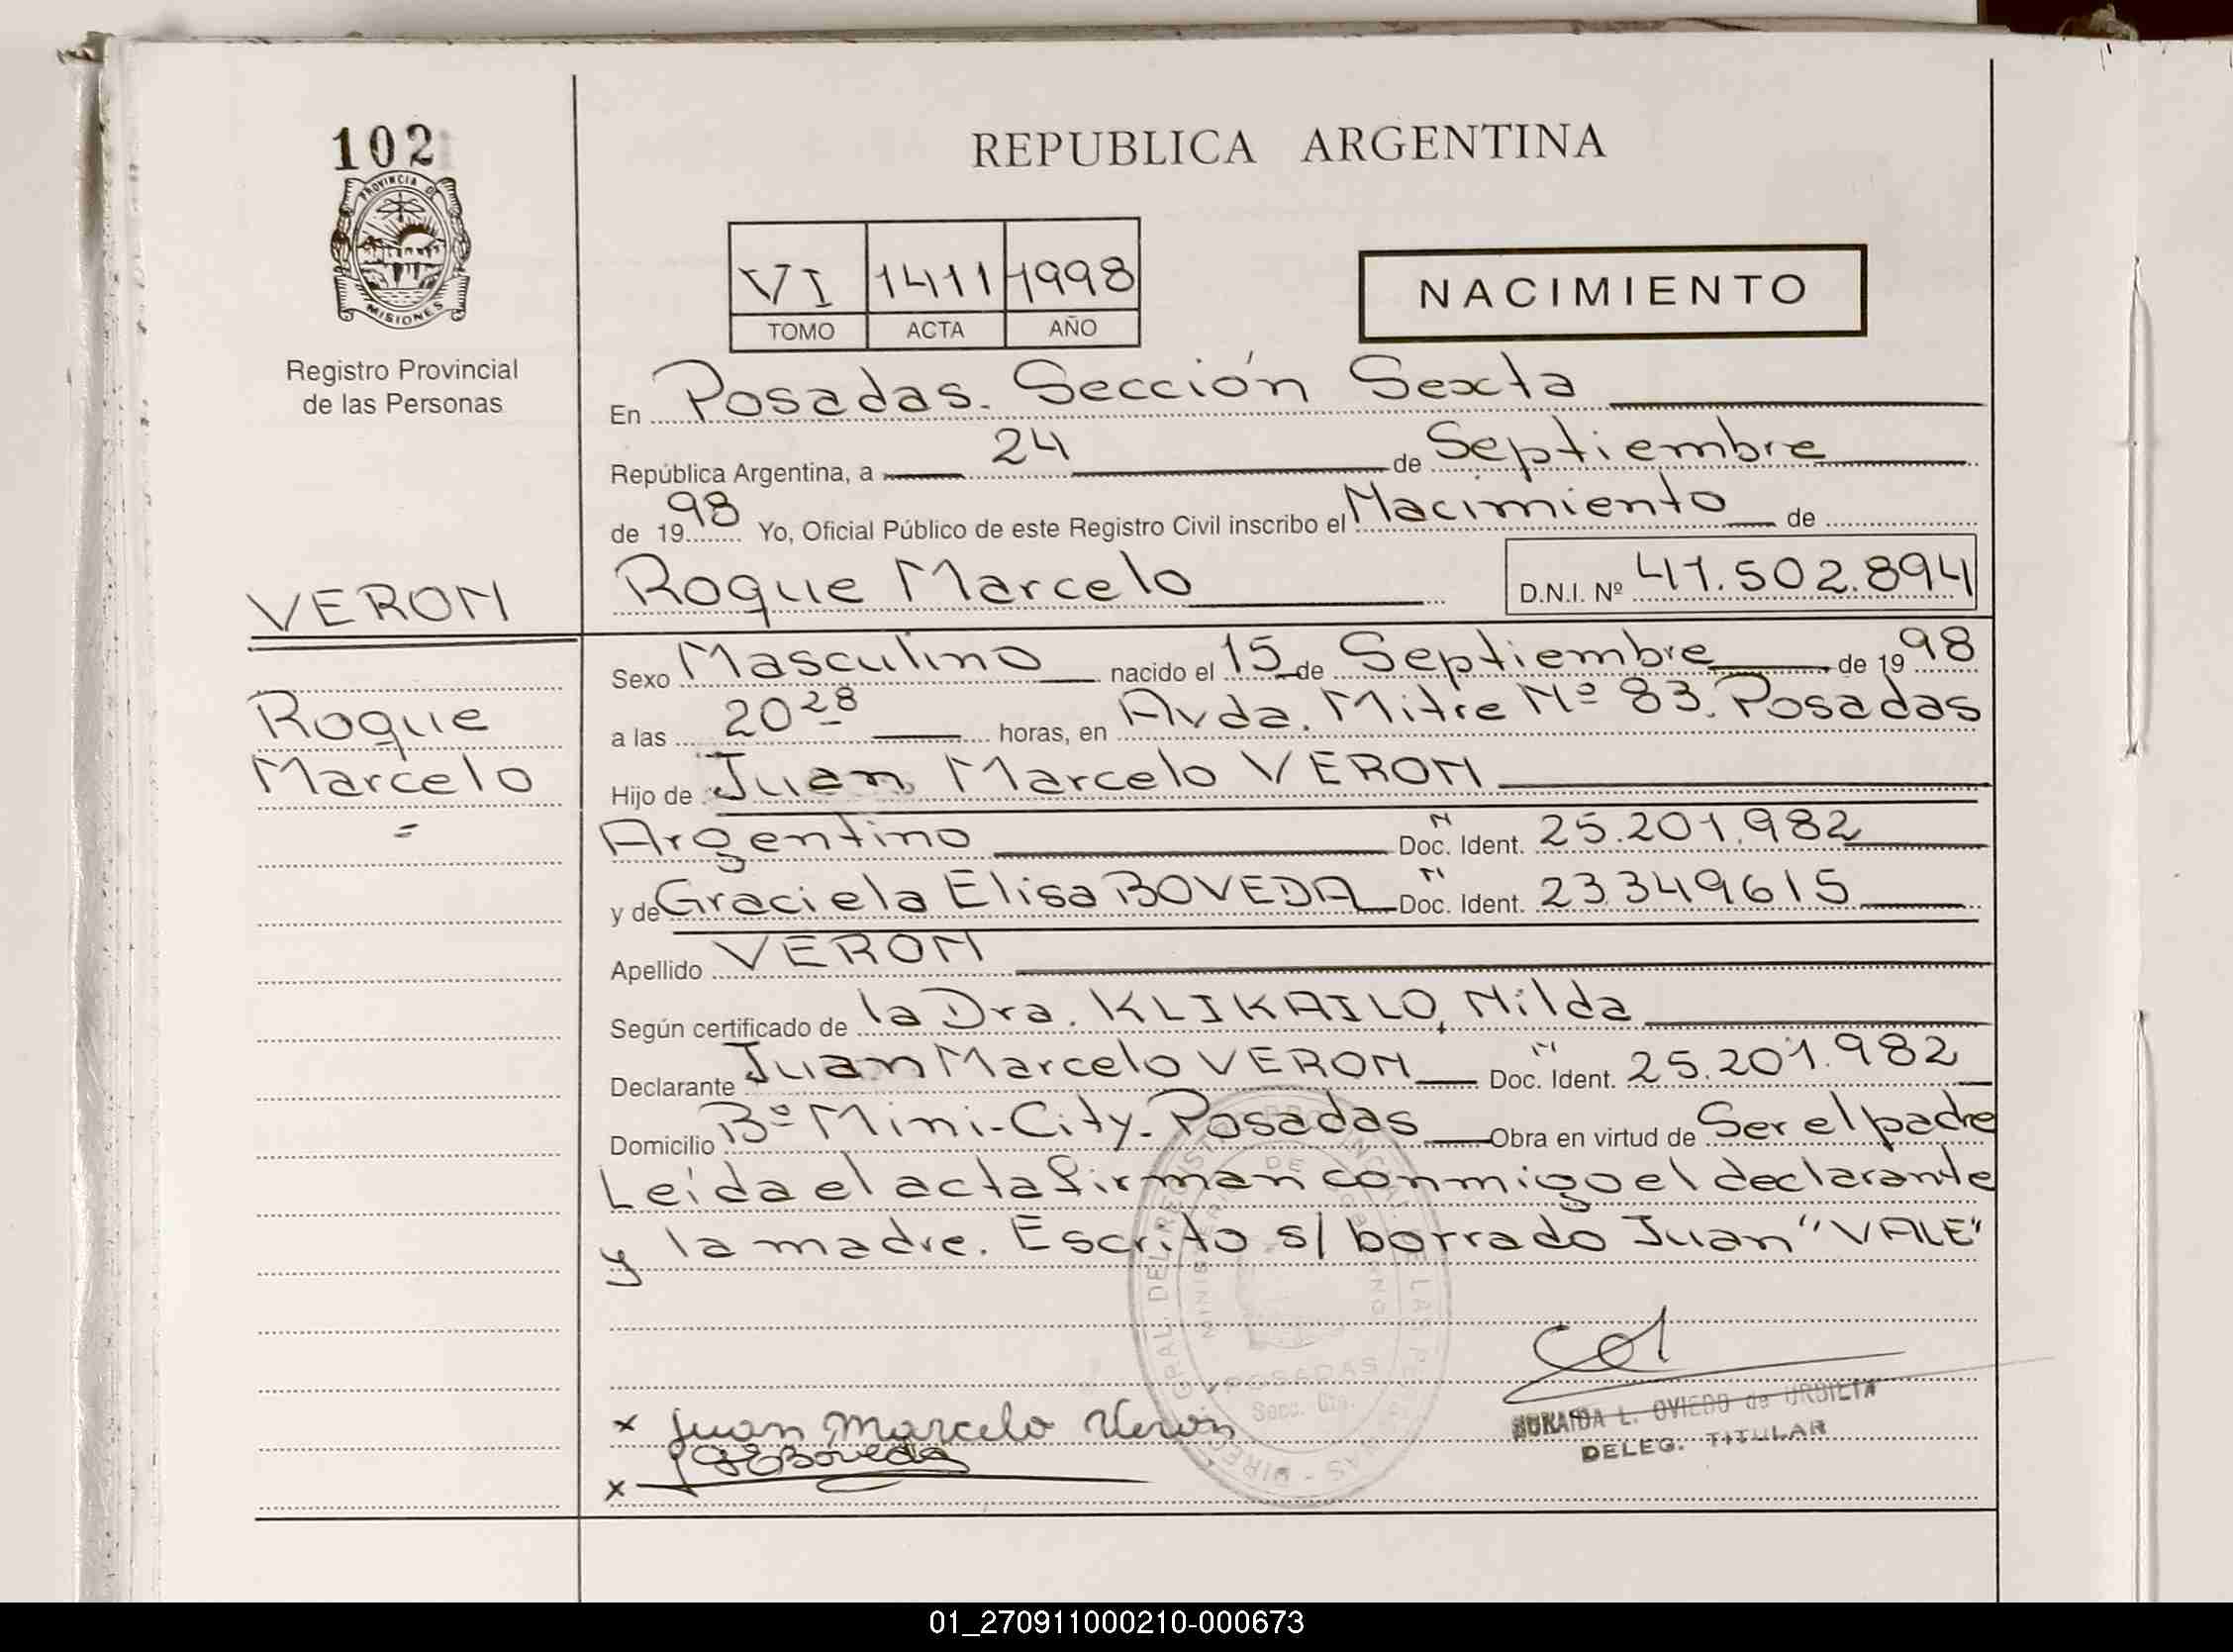 102
PROVINCIA DE
MISIONES
Registro Provincial
de las Personas
REPUBLICA ARGENTINA
VI 1411 1998
TOMO ACTA AÑO
NACIMIENTO
En Posadas. Sección Sexta
República Argentina, a 24 de Septiembre
de 1998 Yo, Oficial Público de este Registro Civil inscribo el Nacimiento de
VERON
Roque Marcelo D.N.I. Nº 41.502.894
Sexo Masculino nacido el 15 de Septiembre de 1998
Roque
Marcelo
=
a las 20 28 horas, en Avda. Mitre Nº 83. Posadas
Hijo de Juan Marcelo VERON
Argentino Doc. N Ident. 25.201.982
y de Graciela Elisa BOVEDA Doc. N Ident. 23.349615
Apellido VERON
Según certificado de la Dra. KLIKAILO, Nilda
Declarante Juan Marcelo VERON Doc. N Ident. 25.201.982
Domicilio Bº Mini-City. Posadas Obra en virtud de Ser el padre
Leída el acta firman conmigo el declarante
y la madre. Escrito s/ borrado Juan "VALE"
POSADAS
x Juan Marcelo Veron
x GEBóveda
L. OVIEDO de URDILIA
DELEG. TITULAR
01_270911000210-000673